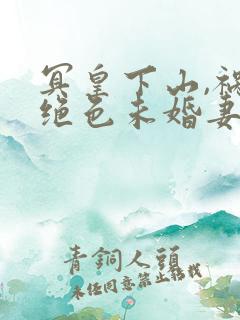 冥皇下山,祸
绝色未婚妻
青銅人頭
未经同意禁止转载